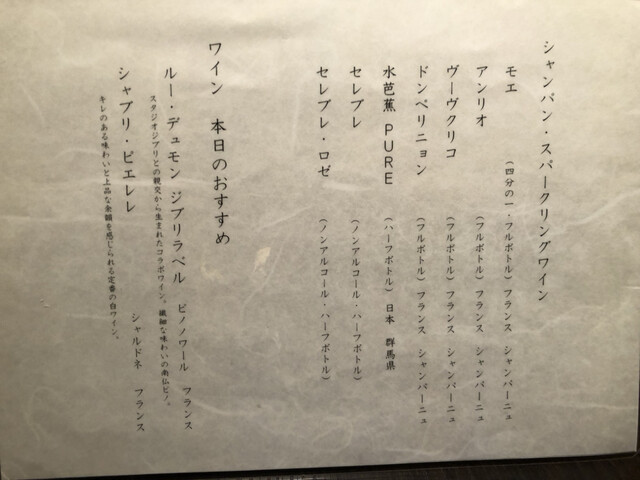 シャンパン・スパークリングワイン
モエ （四分の一・フルボトル）フランス シャンパーニュ
アンリオ （フルボトル）フランス シャンパーニュ
ヴーヴクリコ （フルボトル）フランス シャンパーニュ
ドンペリニョン （フルボトル）フランス シャンパーニュ
水芭蕉 PURE （ハーフボトル）日本 群馬県
セレブレ （ノンアルコール・ハーフボトル）
セレブレ・ロゼ （ノンアルコール・ハーフボトル）
ワイン 本日のおすすめ
ルー・デュモン ジブリラベル ピノノワール フランス
スタジオジブリとの親交から生まれたコラボワイン。繊細な味わいの南仏ピノ。
シャブリ・ピエレレ シャルドネ フランス
キレのある味わいと上品な余韻を感じられる定番の白ワイン。